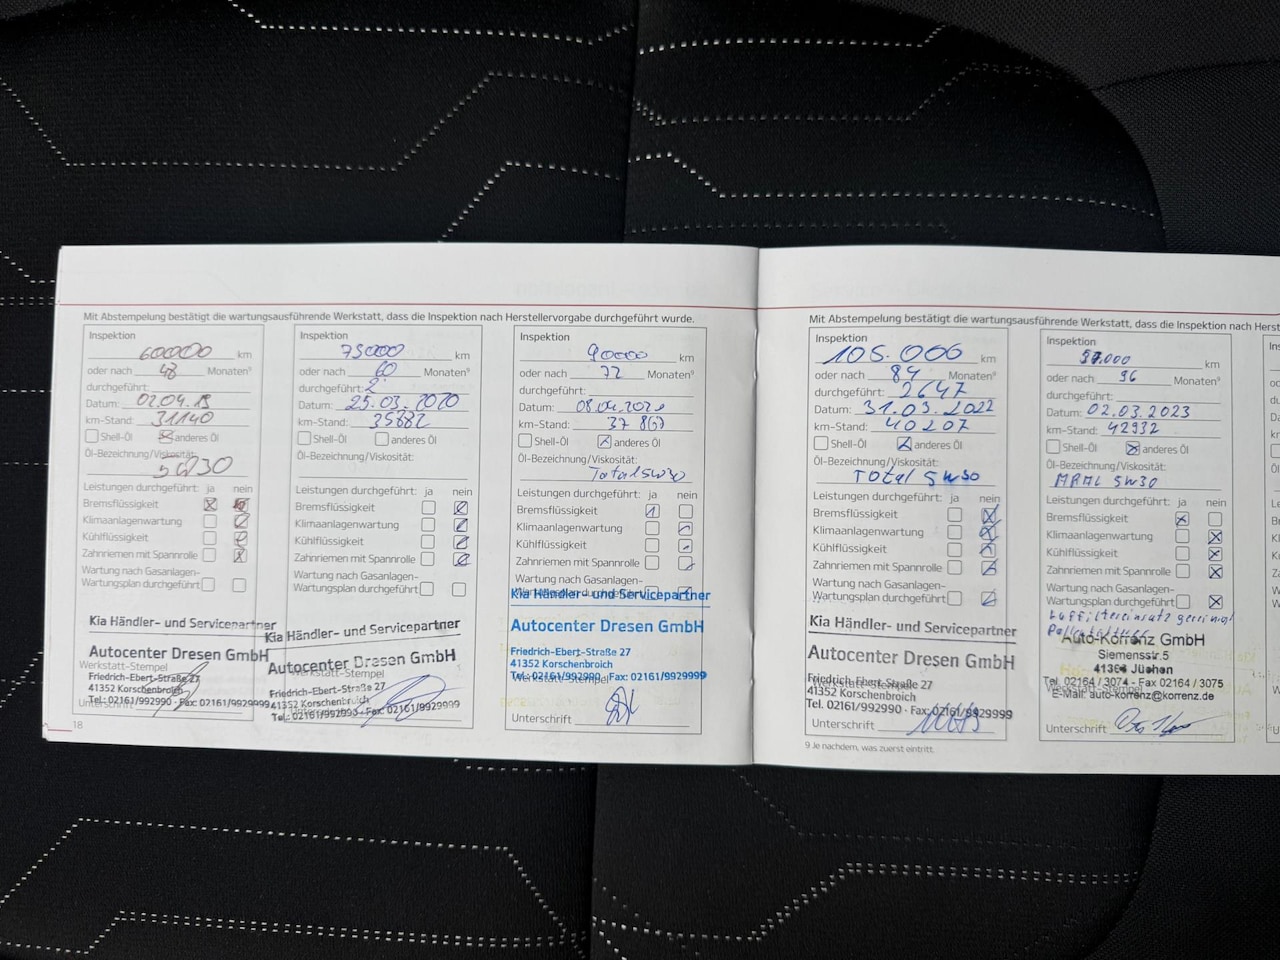 Mit Abstempelung bestätigt die wartungsausführende Werkstatt, dass die Inspektion nach Herstellervorgabe durchgeführt wurde.
Inspektion
60000 km
oder nach 48 Monaten⁹
durchgeführt:
Datum: 02.04.19
km-Stand: 31140
Shell-Öl anderes Öl
Öl-Bezeichnung/Viskosität:
5W30
Leistungen durchgeführt: ja nein
Bremsflüssigkeit
Klimaanlagenwartung
Kühlflüssigkeit
Zahnriemen mit Spannrolle
Wartung nach Gasanlagen-
Wartungsplan durchgeführt
Kia Händler- und Servicepartner
Autocenter Dresen GmbH
Werkstatt-Stempel
Friedrich-Ebert-Straße 27
41352 Korschenbroich
Tel.: 02161/992990 · Fax: 02161/9929999
Unterschrift
18
Inspektion
75000 km
oder nach 60 Monaten⁹
durchgeführt:
Datum: 25.03.2020
km-Stand: 35882
Shell-Öl anderes Öl
Öl-Bezeichnung/Viskosität:
Leistungen durchgeführt: ja nein
Bremsflüssigkeit
Klimaanlagenwartung
Kühlflüssigkeit
Zahnriemen mit Spannrolle
Wartung nach Gasanlagen-
Wartungsplan durchgeführt
Kia Händler- und Servicepartner
Autocenter Dresen GmbH
Werkstatt-Stempel
Friedrich-Ebert-Straße 27
41352 Korschenbroich
Tel.: 02161/992990 · Fax: 02161/9929999
Inspektion
90000 km
oder nach 72 Monaten⁹
durchgeführt:
Datum:
km-Stand:
Shell-Öl anderes Öl
Öl-Bezeichnung/Viskosität:
Total 5W30
Leistungen durchgeführt: ja nein
Bremsflüssigkeit
Klimaanlagenwartung
Kühlflüssigkeit
Zahnriemen mit Spannrolle
Wartung nach Gasanlagen-
Wartungsplan durchgeführt
Kia Händler- und Servicepartner
Autocenter Dresen GmbH
Friedrich-Ebert-Straße 27
41352 Korschenbroich
Werkstatt-Stempel
Tel.: 02161/992990 · Fax: 02161/9929999
Unterschrift
Mit Abstempelung bestätigt die wartungsausführende Werkstatt, dass die Inspektion nach Herst
Inspektion
105.000 km
oder nach 84 Monaten⁹
durchgeführt: 2647
Datum: 31.03.2022
km-Stand: 40207
Shell-Öl anderes Öl
Öl-Bezeichnung/Viskosität:
Total 5W30
Leistungen durchgeführt: ja nein
Bremsflüssigkeit
Klimaanlagenwartung
Kühlflüssigkeit
Zahnriemen mit Spannrolle
Wartung nach Gasanlagen-
Wartungsplan durchgeführt
Kia Händler- und Servicepartner
Autocenter Dresen GmbH
Werkstatt-Stempel
Friedrich-Ebert-Straße 27
41352 Korschenbroich
Tel. 02161/992990 · Fax: 02161/9929999
Unterschrift
9 Je nachdem, was zuerst eintritt.
Inspektion
km
oder nach 96 Monaten⁹
durchgeführt:
Datum: 02.03.2023
km-Stand: 42932
Shell-Öl anderes Öl
Öl-Bezeichnung/Viskosität:
5W30
Leistungen durchgeführt: ja nein
Bremsflüssigkeit
Klimaanlagenwartung
Kühlflüssigkeit
Zahnriemen mit Spannrolle
Wartung nach Gasanlagen-
Wartungsplan durchgeführt
Luftfiltereinsatz gereinigt
Auto-Korrenz GmbH
Siemensstr.5
41363 Jüchen
Tel. 02164 / 3074 - Fax 02164 / 3075
Werkstatt-Stempel
E-Mail: auto-korrenz@korrenz.de
Unterschrift